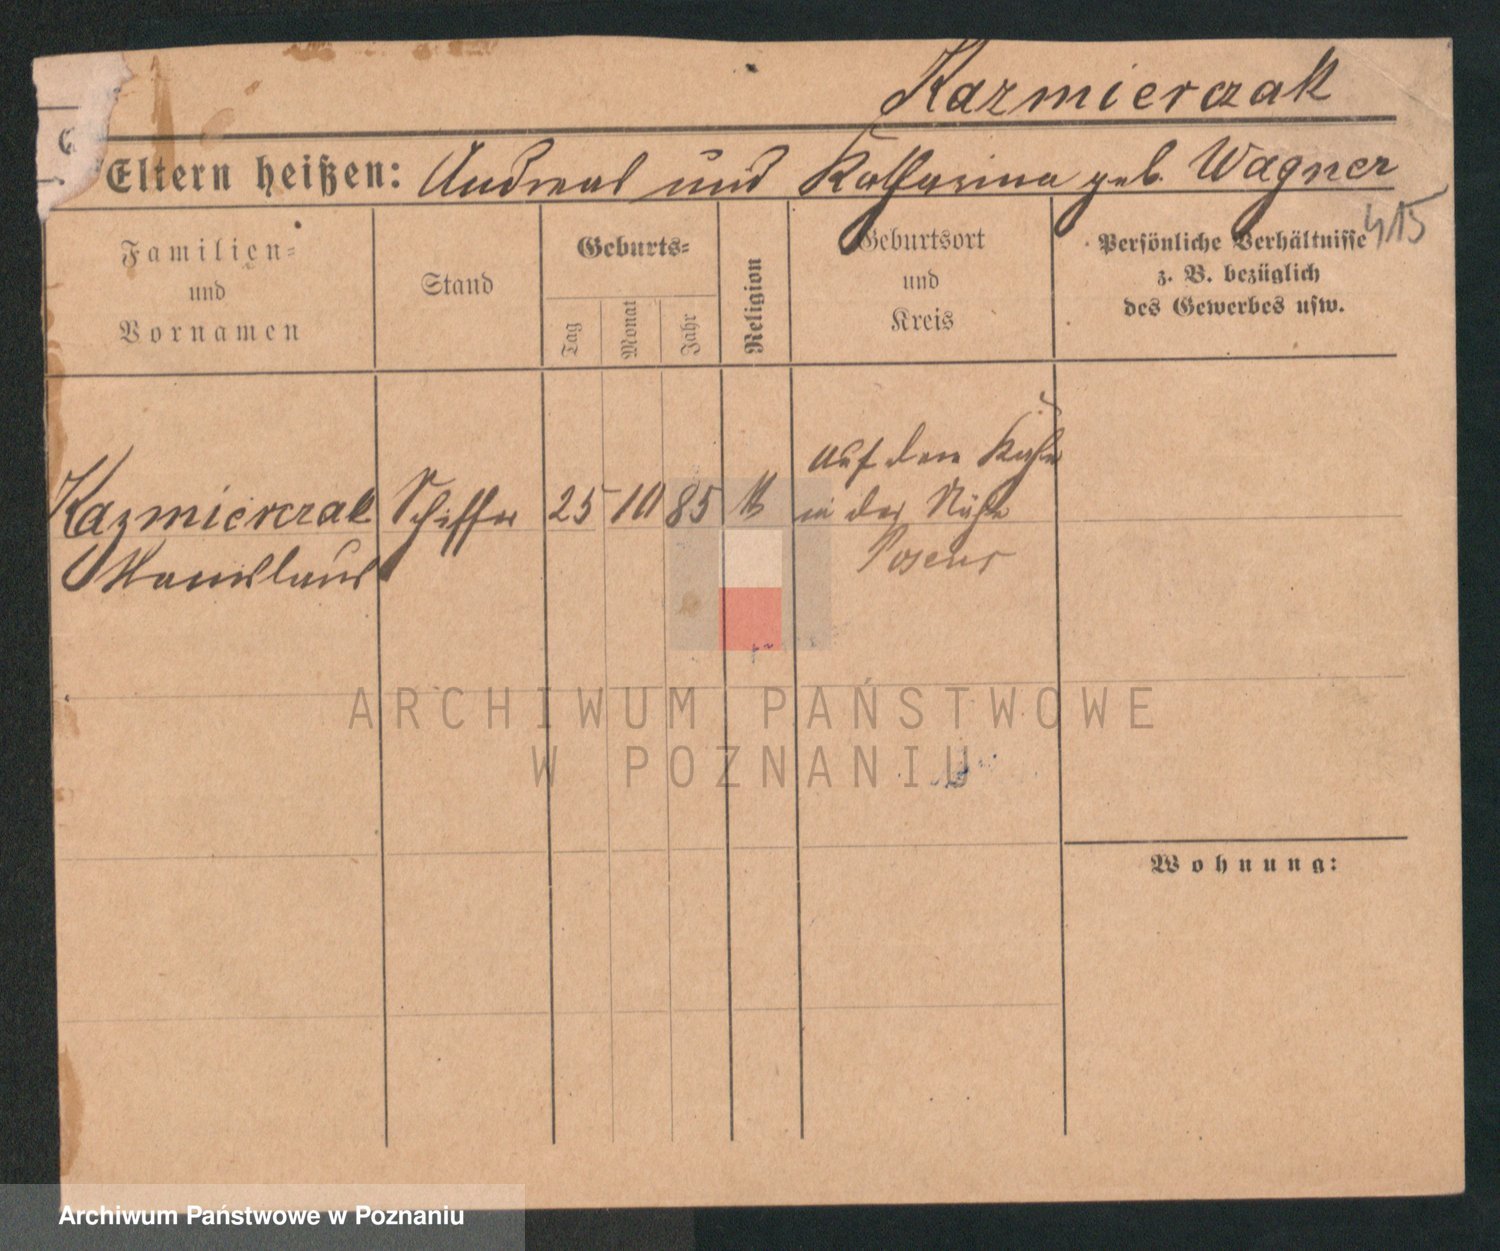 Kazmierczak
Eltern heißen: Andreas und Katharina geb. Wagner
415
Familien=
und
Vornamen
Stand
Geburts=
Tag
Monat
Jahr
Religion
Geburtsort
und
Kreis
Persönliche Verhältnisse
z. B. bezüglich
des Gewerbes usw.
Kazmierczak Schiffer 25 10 85 k auf dem Kahn
in der Nähe
Stanislaus Posens
ARCHIWUM PAŃSTWOWE
W POZNANIU
Wohnung:
Archiwum Państwowe w Poznaniu